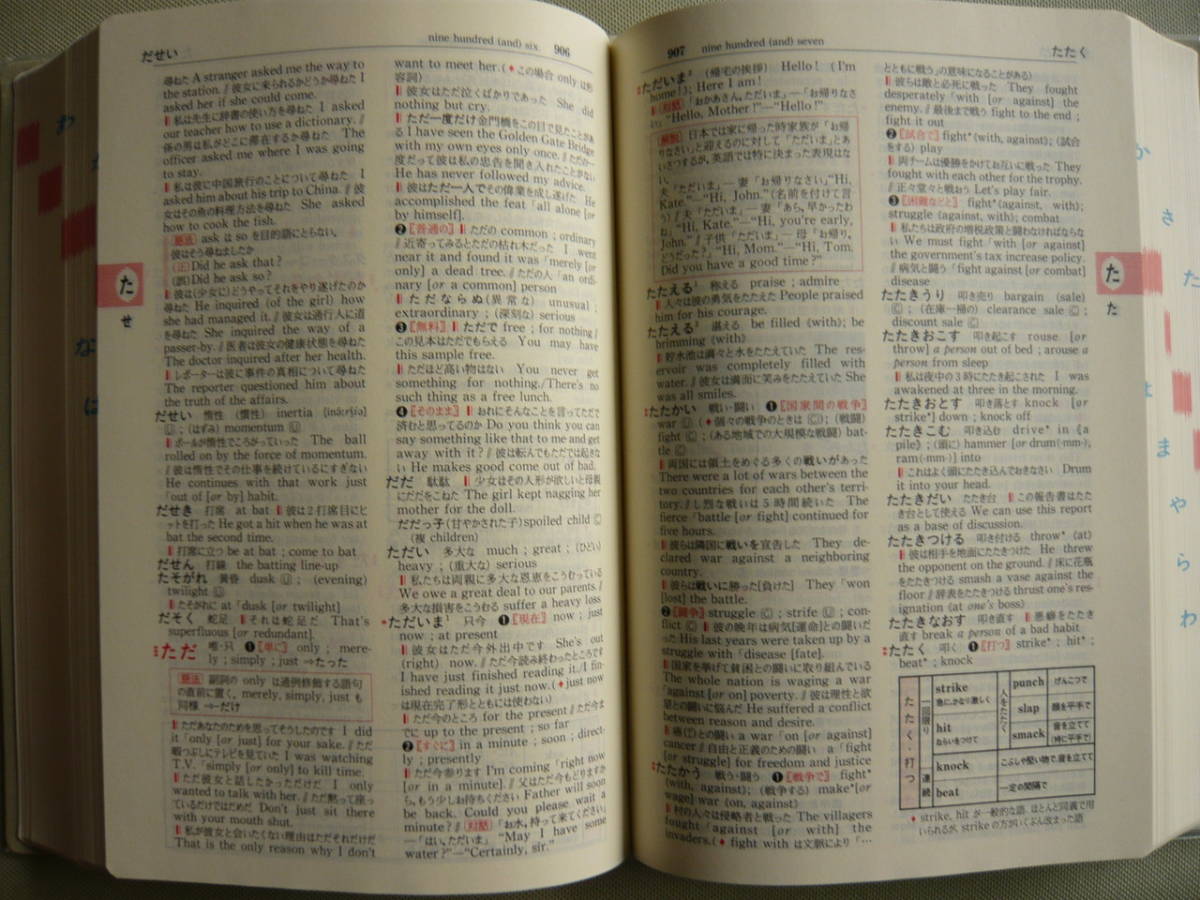 だせい
nine hundred (and) six 906
尋ねた A stranger asked me the way to
the station. ‖ 彼女に来られるかどうか尋ねた I
asked her if she could come.
‖ 私は先生に辞書の使い方を尋ねた I asked
our teacher how to use a dictionary. ‖
係の男は私がどこに滞在するか尋ねた The
officer asked me where I was going
to stay.
‖ 私は彼に中国旅行のことについて尋ねた I
asked him about his trip to China. ‖ 彼
女はその魚の料理方法を尋ねた She asked
how to cook the fish.
語法 ask は so を目的語にとらない。
彼はそう尋ねましたか
(正)Did he ask that?
(誤)Did he ask so?
‖ 彼は(少女に)どうやってそれをやり遂げたのか
尋ねた He inquired (of the girl) how
she had managed it. ‖ 彼女は通行人に道
を尋ねた She inquired the way of a
passer-by. ‖ 医者は彼女の健康状態を尋ねた
The doctor inquired after her health.
‖ レポーターは彼に事件の真相について尋ねた
The reporter questioned him about
the truth of the affairs.
だせい 惰性 (慣性) inertia
Ⓤ ; (はずみ) momentum Ⓤ
‖ ボールが惰性でころがっていった The ball
rolled on by the force of momentum.
‖ 彼は惰性でその仕事を続けているにすぎない
He continues with that work just
ˈout of [or by] habit.
だせき 打席 at bat ‖ 彼は2打席目にヒ
ットを打った He got a hit when he was at
bat the second time.
‖ 打席に立つ be at bat ; come to bat
だせん 打線 the batting line-up
たそがれ 黄昏 dusk Ⓤ ; (evening)
twilight Ⓤ
‖ たそがれに at ˈdusk [or twilight]
だそく 蛇足 ‖ それは蛇足だ That's
superfluous [or redundant].
ただ 唯・只 ❶〖単に〗 only ; mere-
ly ; simply ; just →たった
語法 副詞の only は通例修飾する語句
の直前に置く. merely, simply, just も
同様 →だけ
‖ ただあなたのためを思ってそうしたのです I did
it ˈonly [or just] for your sake. ‖ ただ
暇つぶしにテレビを見ていた I was watching
T.V. ˈsimply [or only] to kill time.
‖ ただ彼女と話したかっただけだ I only
wanted to talk with her. ‖ ただ黙って座っ
ているだけではだめだ Don't just sit there
with your mouth shut.
‖ 私が彼女と会いたくない理由はただそれだけだ
That is the only reason why I don't
want to meet her. (♦この場合 only は形
容詞)
‖ 彼女はただ泣くばかりであった She did
nothing but cry.
‖ ただ一度だけ金門橋をこの目で見たことがあ
る I have seen the Golden Gate Bridge
with my own eyes only once. ‖ ただの一
度だって彼は私の忠告を聞き入れたことがない
He has never followed my advice.
‖ 彼はただ一人でその偉業を成し遂げた He
accomplished the feat ˈall alone [or
by himself].
❷〖普通の〗 ‖ ただの common ; ordinary
‖ 近寄ってみるとただの枯れ木だった I went
near it and found it was ˈmerely [or
only] a dead tree. ‖ ただの人 ˈan ordi-
nary [or a common] person
‖ ただならぬ (異常な) unusual ;
extraordinary ; (深刻な) serious
❸〖無料〗 ‖ ただで free ; for nothing ‖
この見本はただでもらえる You may have
this sample free.
‖ ただほど高い物はない You never get
something for nothing./There's no
such thing as a free lunch.
❹〖そのまま〗 ‖ おれにそんなことを言ってただで
済むと思ってるのか Do you think you can
say something like that to me and get
away with it? ‖ 彼は転んでもただでは起きな
い He makes good come out of bad.
だだ 駄駄 ‖ 少女はその人形が欲しいと母親
にだだをこねた The girl kept nagging her
mother for the doll.
だだっ子 (甘やかされた子) spoiled child Ⓒ
(複 children)
ただい 多大な much ; great ; (ひどい)
heavy ; (重大な) serious
‖ 私たちは両親に多大な恩恵をこうむっている
We owe a great deal to our parents. ‖
多大な損害をこうむる suffer a heavy loss
ただいま¹ 只今 ❶〖現在〗 now ; just
now ; at present
‖ 彼女はただ今外出中です She's out
(right) now. ‖ ただ今読み終わったところです
I have just finished reading it./I fin-
ished reading it just now. (♦just now
は現在完了形とともには使わない)
‖ ただ今のところ for the present ‖ ただ今ま
でに up to the present ; so far
❷〖すぐに〗 in a minute ; soon ; direct-
ly ; presently
‖ ただ今参ります I'm coming ˈright now
[or in a minute]. ‖ 父はただ今もどりますか
ら, もう少しお待ちください Father will soon
be back. Could you please wait a
minute? ‖ 対話 「お水, 持って来てください」
―「はい, ただいま」 “May I have some
water?”—“Certainly, sir.”
た
せ
907 nine hundred (and) seven
たたく
ただいま² (帰宅の挨拶) Hello! (I'm
home!) ; Here I am!
‖ 対話 「おかあさん, ただいま」―「お帰りなさ
い」 “Hello, Mother!”—“Hello!”
解説 日本では家に帰った時家族が「お帰
りなさい」と迎えるのに対して「ただいま」とあ
いさつするが, 英語では特に決まった表現はな
い。
夫「ただいま」―妻「お帰りなさい」“Hi,
Kate.”—“Hi, John.” (名前を付けて言
う) / 夫「ただいま」―妻「あら, 早かったわ
ね」“Hi, Kate.”—“Hi, you're early,
John.” / 子供「ただいま」―母「お帰り。
どうだった?」“Hi, Mom.”—“Hi, Tom.
Did you have a good time?”
たたえる¹ 称える praise ; admire
‖ 人々は彼の勇気をたたえた People praised
him for his courage.
たたえる² 湛える be filled (with); be
brimming (with)
‖ 貯水池は満々と水をたたえていた The res-
ervoir was completely filled with
water. ‖ 彼女は満面に笑みをたたえていた She
was all smiles.
たたかい 戦い・闘い ❶〖国家間の戦争〗
war Ⓤ (♦個々の戦争のときは Ⓒ); (戦闘)
fight Ⓒ ; (ある地域での大規模な戦闘) bat-
tle Ⓒ
‖ 両国には領土をめぐる多くの戦いがあった
There were a lot of wars between the
two countries for each other's terri-
tory. ‖ し烈な戦いは5時間続いた The
fierce ˈbattle [or fight] continued for
five hours.
‖ 彼らは隣国に戦いを宣告した They de-
clared war against a neighboring
country.
‖ 彼らは戦いに勝った[負けた] They ˈwon
[lost] the battle.
❷〖闘争〗 struggle Ⓒ ; strife Ⓤ ; con-
flict Ⓒ
‖ 彼の晩年は病気[運命]との闘いだ
った His last years were taken up by a
struggle with ˈdisease [fate].
‖ 国家を挙げて貧困との闘いに取り組んでいる
The whole nation is waging a war
ˈagainst [or on] poverty. ‖ 彼は理性と欲
望との闘いに悩んだ He suffered a conflict
between reason and desire.
‖ 癌との闘い a war ˈon [or against]
cancer ‖ 自由と正義のための闘い a ˈfight
[or struggle] for freedom and justice
たたかう 戦う・闘う ❶〖戦争で〗 fight*
(with, against); (戦争する) make*[or
wage] war (on, against)
‖ 村の人々は侵略者と戦った The villagers
fought ˈagainst [or with] the
invaders. (♦ fight with は文脈により「…
とともに戦う」の意味になることがある)
‖ 彼らは敵と必死に戦った They fought
desperately ˈwith [or against] the
enemy. ‖ 最後まで戦う fight to the end ;
fight it out
❷〖試合で〗 fight*(with, against); (試合
をする) play
‖ 両チームは優勝をかけてお互いに戦った They
fought with each other for the trophy.
‖ 正々堂々と戦おう Let's play fair.
❸〖困難などと〗 fight*(against, with);
struggle (against, with); combat
‖ 私たちは政府の増税政策と闘わなければならな
い We must fight ˈwith [or against]
the government's tax increase policy.
‖ 病気と闘う ˈfight against [or combat]
disease
たたきうり 叩き売り bargain (sale)
Ⓒ ; (在庫一掃の) clearance sale Ⓒ ;
discount sale Ⓒ
たたきおこす 叩き起こす rouse [or
throw] a person out of bed ; arouse a
person from sleep
‖ 私は夜中の3時にたたき起こされた I was
awakened at three in the morning.
たたきおとす 叩き落とす knock [or
strike*] down ; knock off
たたきこむ 叩き込む drive* in (a
pile) ; (頭に) hammer [or drum(-mm-),
ram(-mm-)] into
‖ これはよく頭にたたき込んでおきなさい Drum
it into your head.
たたきだい たたき台 ‖ この報告書はたた
き台として使える We can use this report
as a base of discussion.
たたきつける 叩き付ける throw* (at)
‖ 彼は相手を地面にたたきつけた He threw
the opponent on the ground. ‖ 床に花瓶
をたたきつける smash a vase against the
floor ‖ 辞表をたたきつける thrust one's res-
ignation (at one's boss)
たたきなおす 叩き直す ‖ 悪癖をたたき
直す break a person of a bad habit
たたく 叩く ❶〖打つ〗 strike* ; hit* ;
beat* ; knock
たたく・打つ
一回限り
strike
急に, かなり激しく
hit
ねらいをつけて
人をたたく
punch げんこつで
slap 顔を平手で
smack 音を立てて(特に平手で)
連続
knock こぶしや堅い物で, 音を立てて
beat 一定の間隔で
♦ strike, hit が一般的な語. ほとんど同義で用
いられるが, strike の方がいくぶん改まった語
た
た
か
さ
た
ま
や
ら
わ
な
は